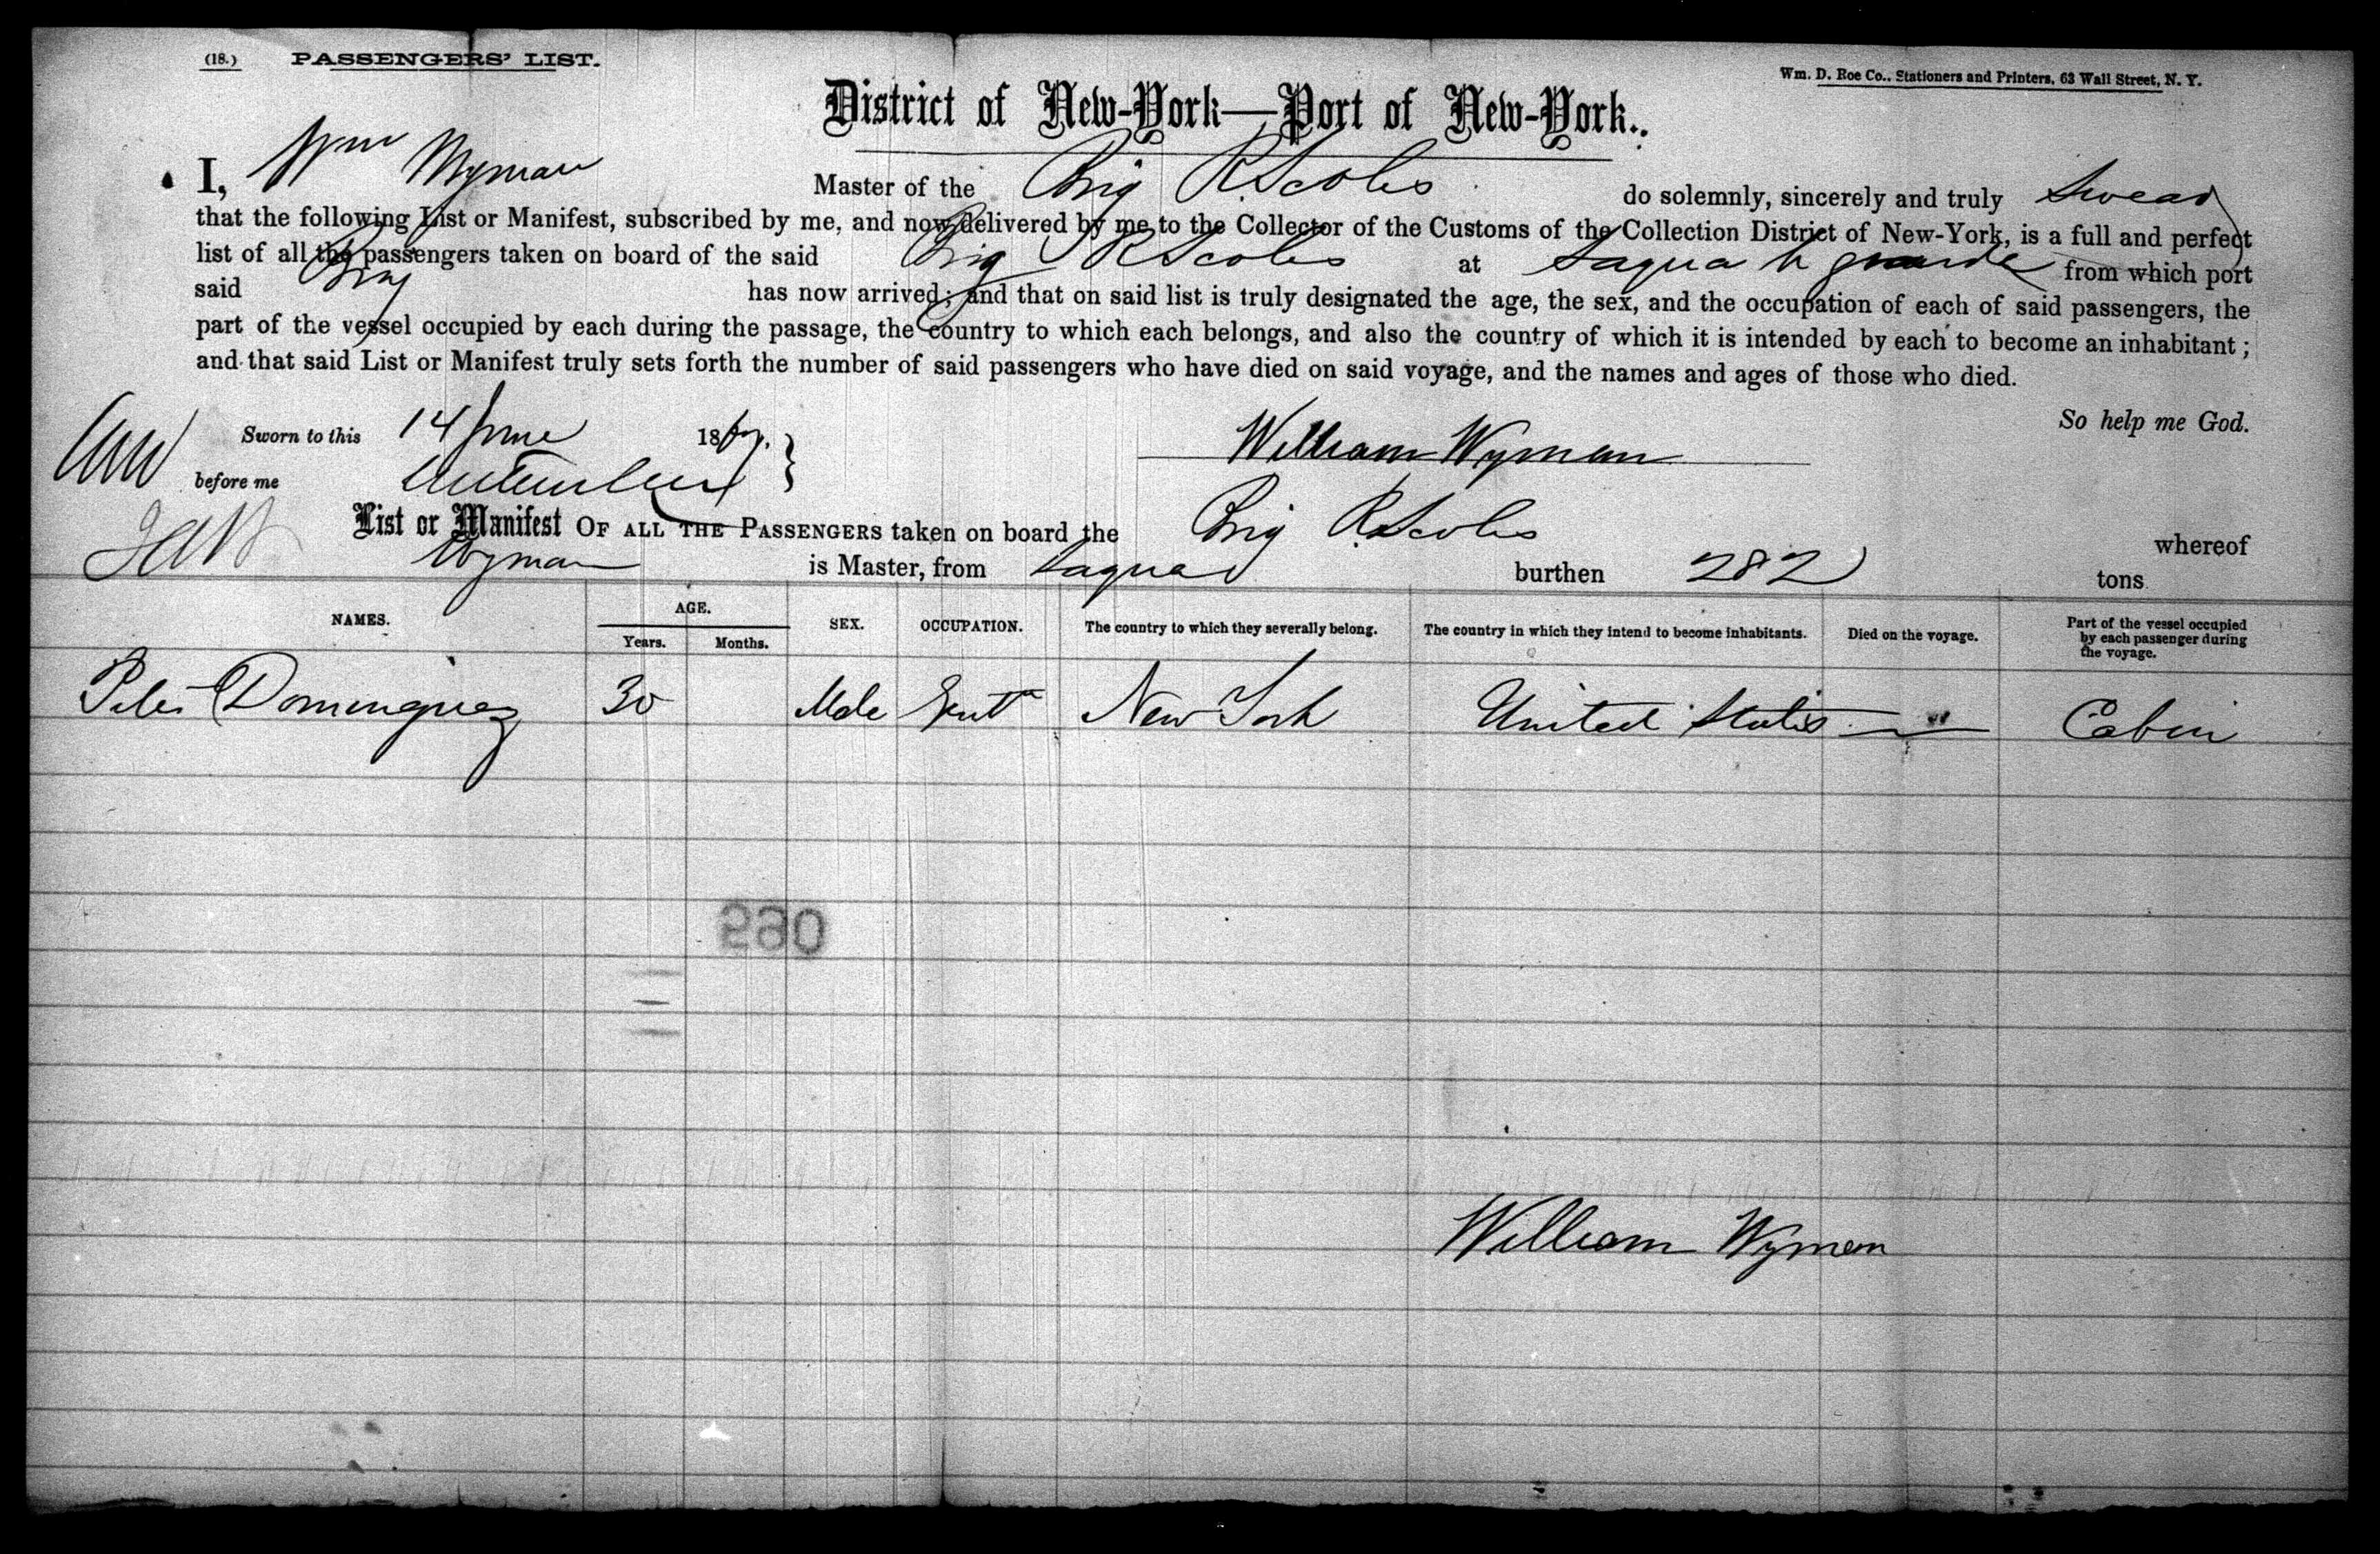 (18.) PASSENGERS' LIST.
Wm. D. Roe Co., Stationers and Printers, 63 Wall Street, N. Y.
District of New-York—Port of New-York.
I, Wm Wyman Master of the Brig R Scobs do solemnly, sincerely and truly Swear
that the following List or Manifest, subscribed by me, and now delivered by me to the Collector of the Customs of the Collection District of New-York, is a full and perfect
list of all the passengers taken on board of the said Brig R Scobs at Sagua la grande from which port
said Brig has now arrived; and that on said list is truly designated the age, the sex, and the occupation of each of said passengers, the
part of the vessel occupied by each during the passage, the country to which each belongs, and also the country of which it is intended by each to become an inhabitant;
and that said List or Manifest truly sets forth the number of said passengers who have died on said voyage, and the names and ages of those who died.
So help me God.
Sworn to this 14 June 18
William Wyman
before me
List or Manifest OF ALL THE PASSENGERS taken on board the Brig R Scobs whereof
Wyman is Master, from Sagua burthen 282 tons
NAMES. AGE. Years. Months. SEX. OCCUPATION. The country to which they severally belong. The country in which they intend to become inhabitants. Died on the voyage. Part of the vessel occupied by each passenger during the voyage.
Peter Dominguez 30 Male Gent New York United States Cabin
William Wyman